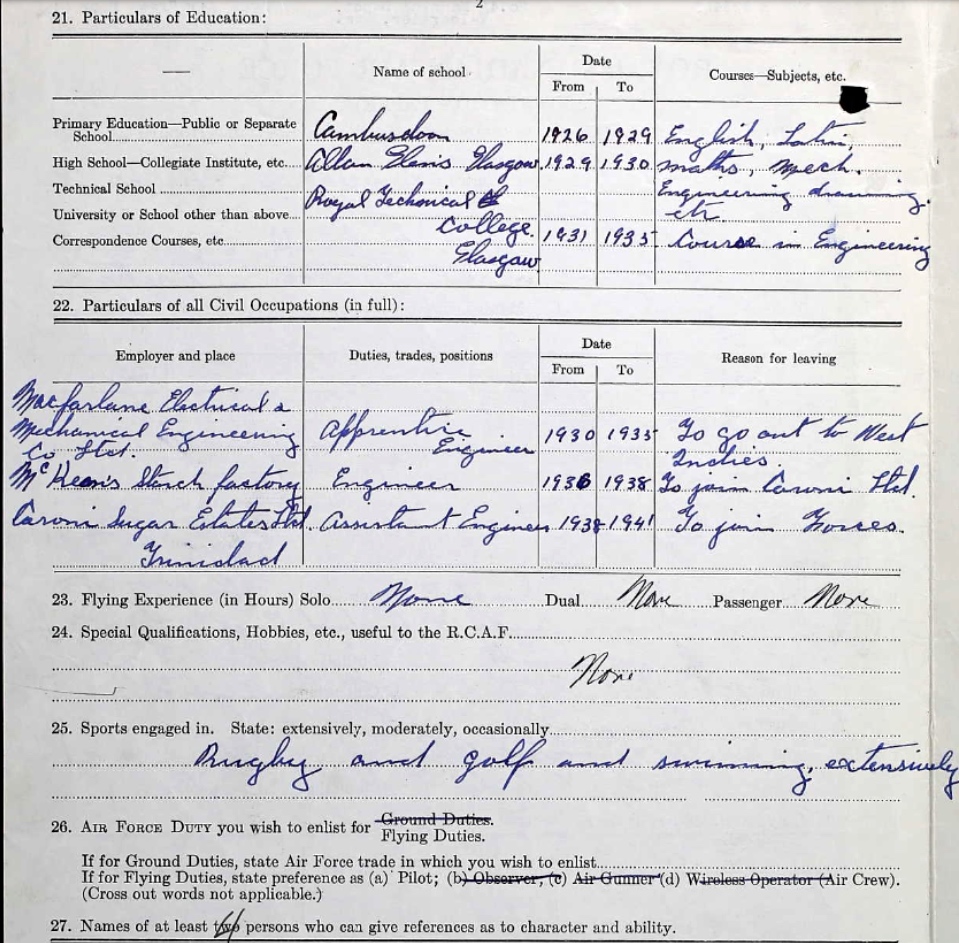 2
21. Particulars of Education:
— Name of school. Date Courses—Subjects, etc.
From To
Primary Education—Public or Separate
School Cambusdoon 1926 1929 English, Latin,
High School—Collegiate Institute, etc. Allan Glens Glasgow. 1929 1930 maths, Mech.
Technical School Engineering drawing.
Royal Techonical
University or School other than above etc
College. 1931 1935 Course in Engineering
Correspondence Courses, etc
Glasgow
22. Particulars of all Civil Occupations (in full):
Employer and place Duties, trades, positions Date Reason for leaving
From To
Macfarlane Electrical &
Mechanical Engineering Apprentice Engineer 1930 1935 To go out to West
Co Ltd. Indies.
McKean's Starch factory Engineer 1936 1938 To join Caroni Ltd.
Caroni Sugar Estates Ltd. Assistant Engineer 1938 1941 To join Forces.
Trinidad
23. Flying Experience (in Hours) Solo None Dual None Passenger None
24. Special Qualifications, Hobbies, etc., useful to the R.C.A.F.
None
25. Sports engaged in. State: extensively, moderately, occasionally
Rugby and golf and swimming, extensively
26. AIR FORCE DUTY you wish to enlist for Ground Duties.
Flying Duties.
If for Ground Duties, state Air Force trade in which you wish to enlist
If for Flying Duties, state preference as (a) Pilot; (b) Observer, (c) Air Gunner (d) Wireless Operator (Air Crew).
(Cross out words not applicable.)
27. Names of at least two persons who can give references as to character and ability.